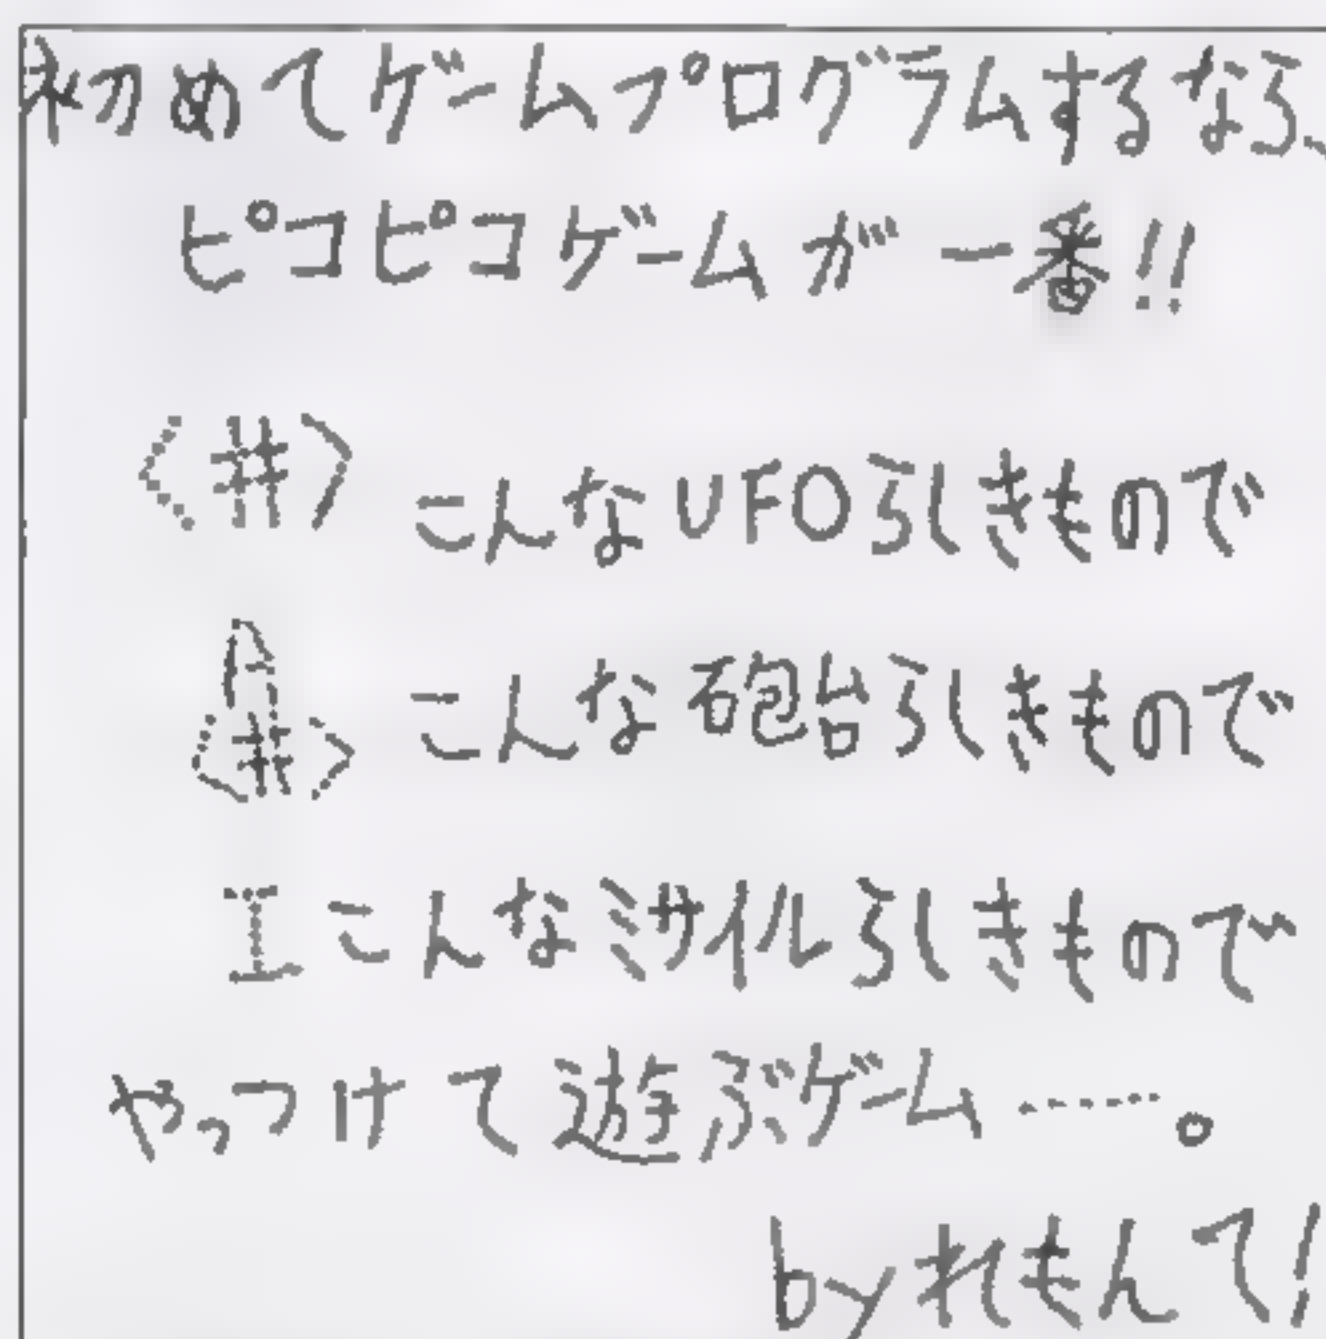 初めてゲームプログラムするなら、
ピコピコゲームが一番!!
<#> こんなUFOらしきもので
<#> こんな砲台らしきもので
I こんなミサイルらしきもので
やっつけて遊ぶゲーム……。
byれもんて!